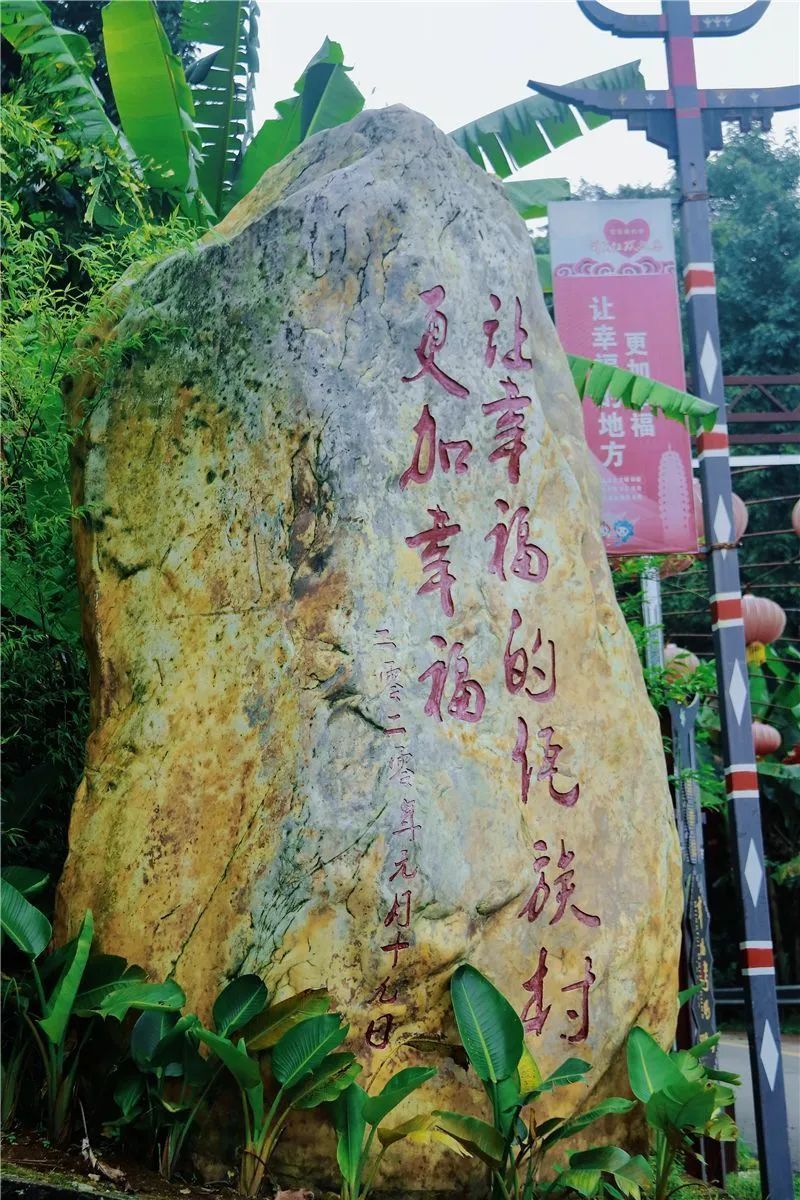 让幸福的佤族村
更加幸福
二零二零年元月十九日
让幸福的地方
更加幸福